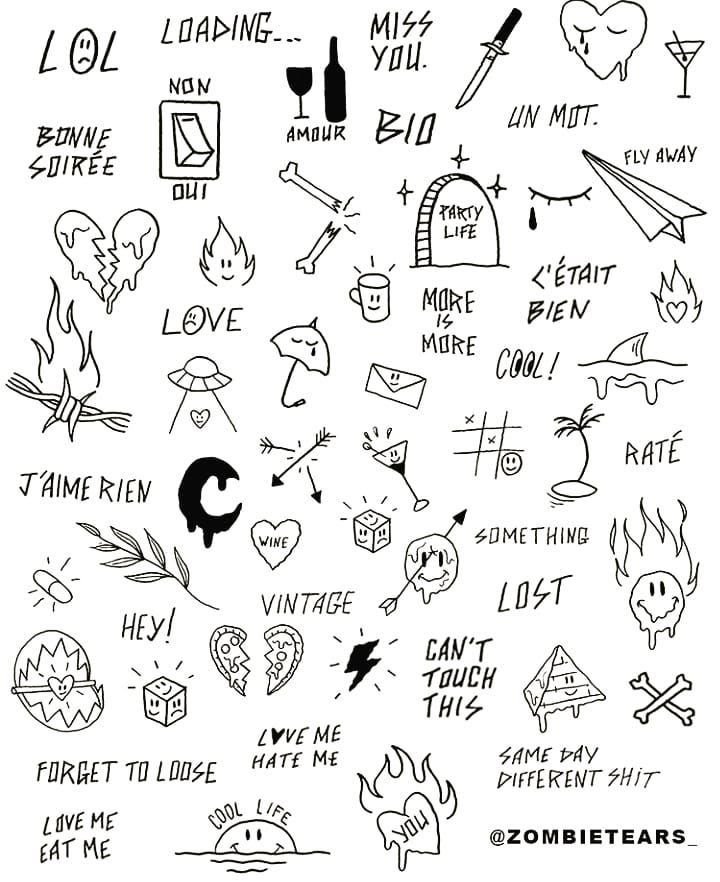 LOL
LOADING...
MISS
YOU.
NON
OUI
AMOUR
BIO
UN MOT.
BONNE
SOIRÉE
FLY AWAY
PARTY
LIFE
C'ÉTAIT
BIEN
LOVE
MORE
IS
MORE
COOL!
RATÉ
J'AIME RIEN
WINE
SOMETHING
LOST
VINTAGE
HEY!
CAN'T
TOUCH
THIS
L♥VE ME
HATE ME
FORGET TO LOOSE
SAME DAY
DIFFERENT SHiT
LOVE ME
EAT ME
COOL LIFE
YOU
@ZOMBIETEARS_